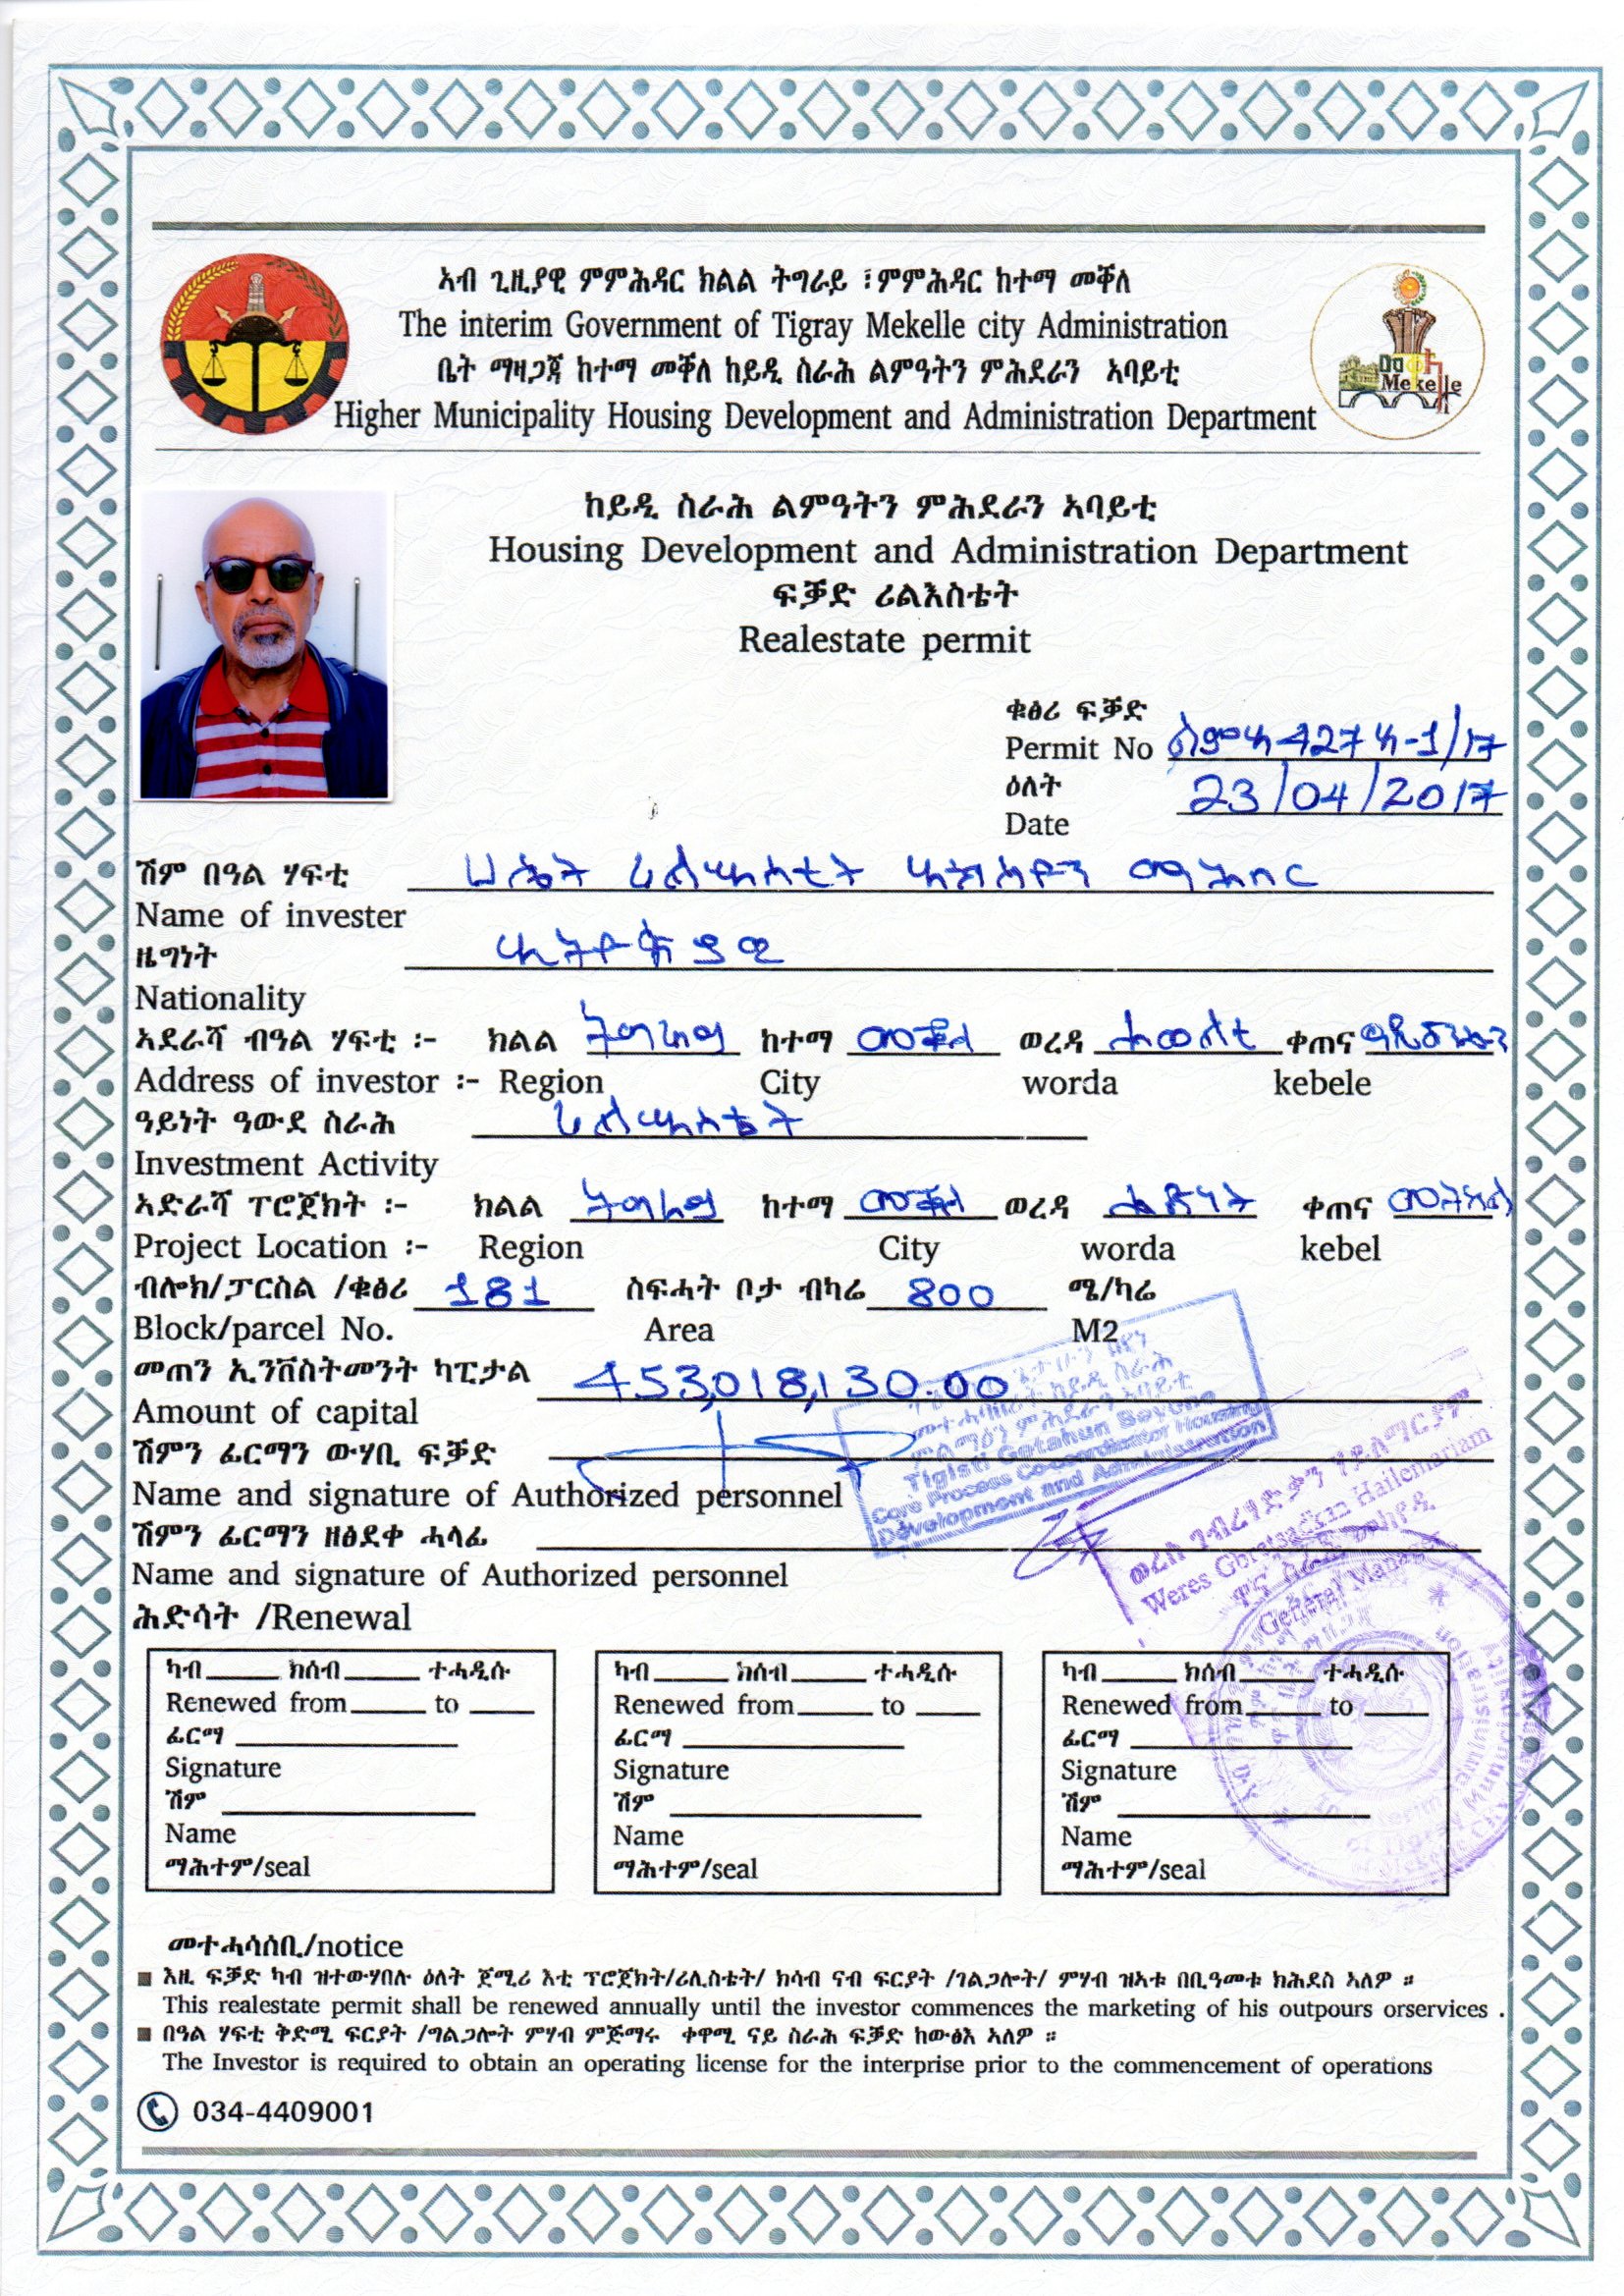 ኣብ ጊዚያዊ ምምሕዳር ክልል ትግራይ ፣ምምሕዳር ከተማ መቐለ
The interim Government of Tigray Mekelle city Administration
ቤት ማዘጋጃ ከተማ መቐለ ከይዲ ስራሕ ልምዓትን ምሕደራን ኣባይቲ
Higher Municipality Housing Development and Administration Department
Mekelle
ከይዲ ስራሕ ልምዓትን ምሕደራን ኣባይቲ
Housing Development and Administration Department
ፍቓድ ሪልእስቴት
Realestate permit
ቁፅሪ ፍቓድ
Permit No
ዕለት 23/04/2017
Date
ሽም በዓል ሃፍቲ
Name of invester
ዜግነት ኢትዮጵያዊ
Nationality
ኣደራሻ ብዓል ሃፍቲ ፦ ክልል ትግራይ ከተማ መቐለ ወረዳ ሓወልቲ ቀጠና
Address of investor :- Region City worda kebele
ዓይነት ዓውደ ስራሕ ሪልእስቴት
Investment Activity
ኣድራሻ ፕሮጀክት ፦ ክልል ትግራይ ከተማ መቐለ ወረዳ ሓድነት ቀጠና
Project Location :- Region City worda kebel
ብሎክ/ፓርስል /ቁፅሪ 181 ስፍሓት ቦታ ብካሬ 800 ሜ/ካሬ
Block/parcel No. Area M2
መጠን ኢንቨስትመንት ካፒታል 453,018,130.00
Amount of capital
ሽምን ፊርማን ውሃቢ ፍቓድ
Name and signature of Authorized personnel
Tigisti Getahun Beyene
Core Process Co-ordinator Housing
Development and Administration
ሽምን ፊርማን ዘፅደቀ ሓላፊ
Name and signature of Authorized personnel
ወረስ ገብረፃድቃን ሃይለማርያም
Weres Gbretsadkan Hailemariam
ዋና ስራሕ መካየዲ
General Manager
ሕድሳት /Renewal
ካብ ክሰብ ተሓዲሱ
Renewed from to
ፊርማ
Signature
ሽም
Name
ማሕተም/seal
ካብ ክሰብ ተሓዲሱ
Renewed from to
ፊርማ
Signature
ሽም
Name
ማሕተም/seal
ካብ ክሰብ ተሓዲሱ
Renewed from to
ፊርማ
Signature
ሽም
Name
ማሕተም/seal
መተሓሳሰቢ/notice
እዚ ፍቓድ ካብ ዝተውሃበሉ ዕለት ጀሚሪ እቲ ፕሮጀክት/ሪሊስቴት/ ክሳብ ናብ ፍርያት /ገልጋሎት/ ምሃብ ዝኣቱ በቢዓመቱ ክሕደስ ኣለዎ ።
This realestate permit shall be renewed annually until the investor commences the marketing of his outpours orservices .
በዓል ሃፍቲ ቅድሚ ፍርያት /ግልጋሎት ምሃብ ምጅማሩ ቀዋሚ ናይ ስራሕ ፍቓድ ከውፅእ ኣለዎ ።
The Investor is required to obtain an operating license for the interprise prior to the commencement of operations
034-4409001